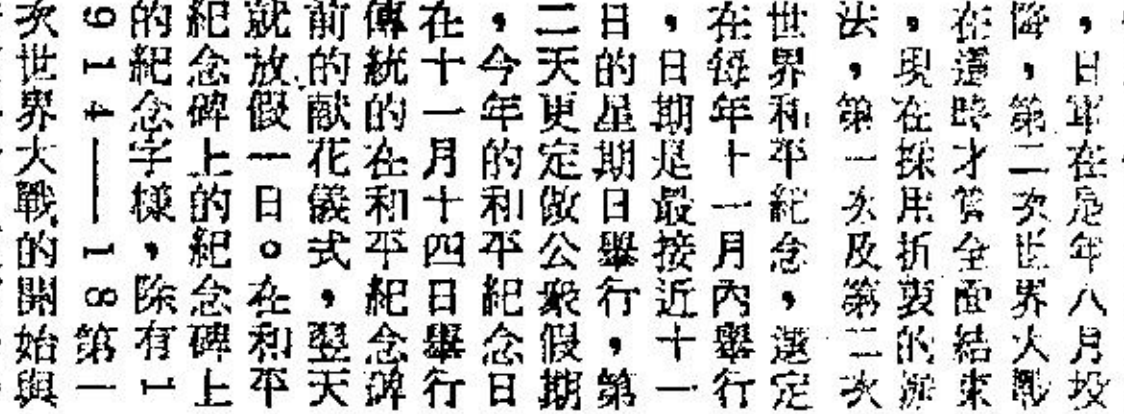 ，日軍在是年八月投
降，第二次世界大戰
在這時才管全面結束
，現在採用折衷的辦
法，第一次及第二次
世界和平紀念，選定
在每年十一月內舉行
，日期是最接近十一
日的星期日舉行，第
二天更定做公衆假期
，今年的和平紀念日
在十一月十四日舉行
傳統的在和平紀念碑
前的献花儀式，翌天
就放假一日。在和平
紀念碑上的紀念碑上
的紀念字樣，除有1
914——18第一
次世界大戰的開始與